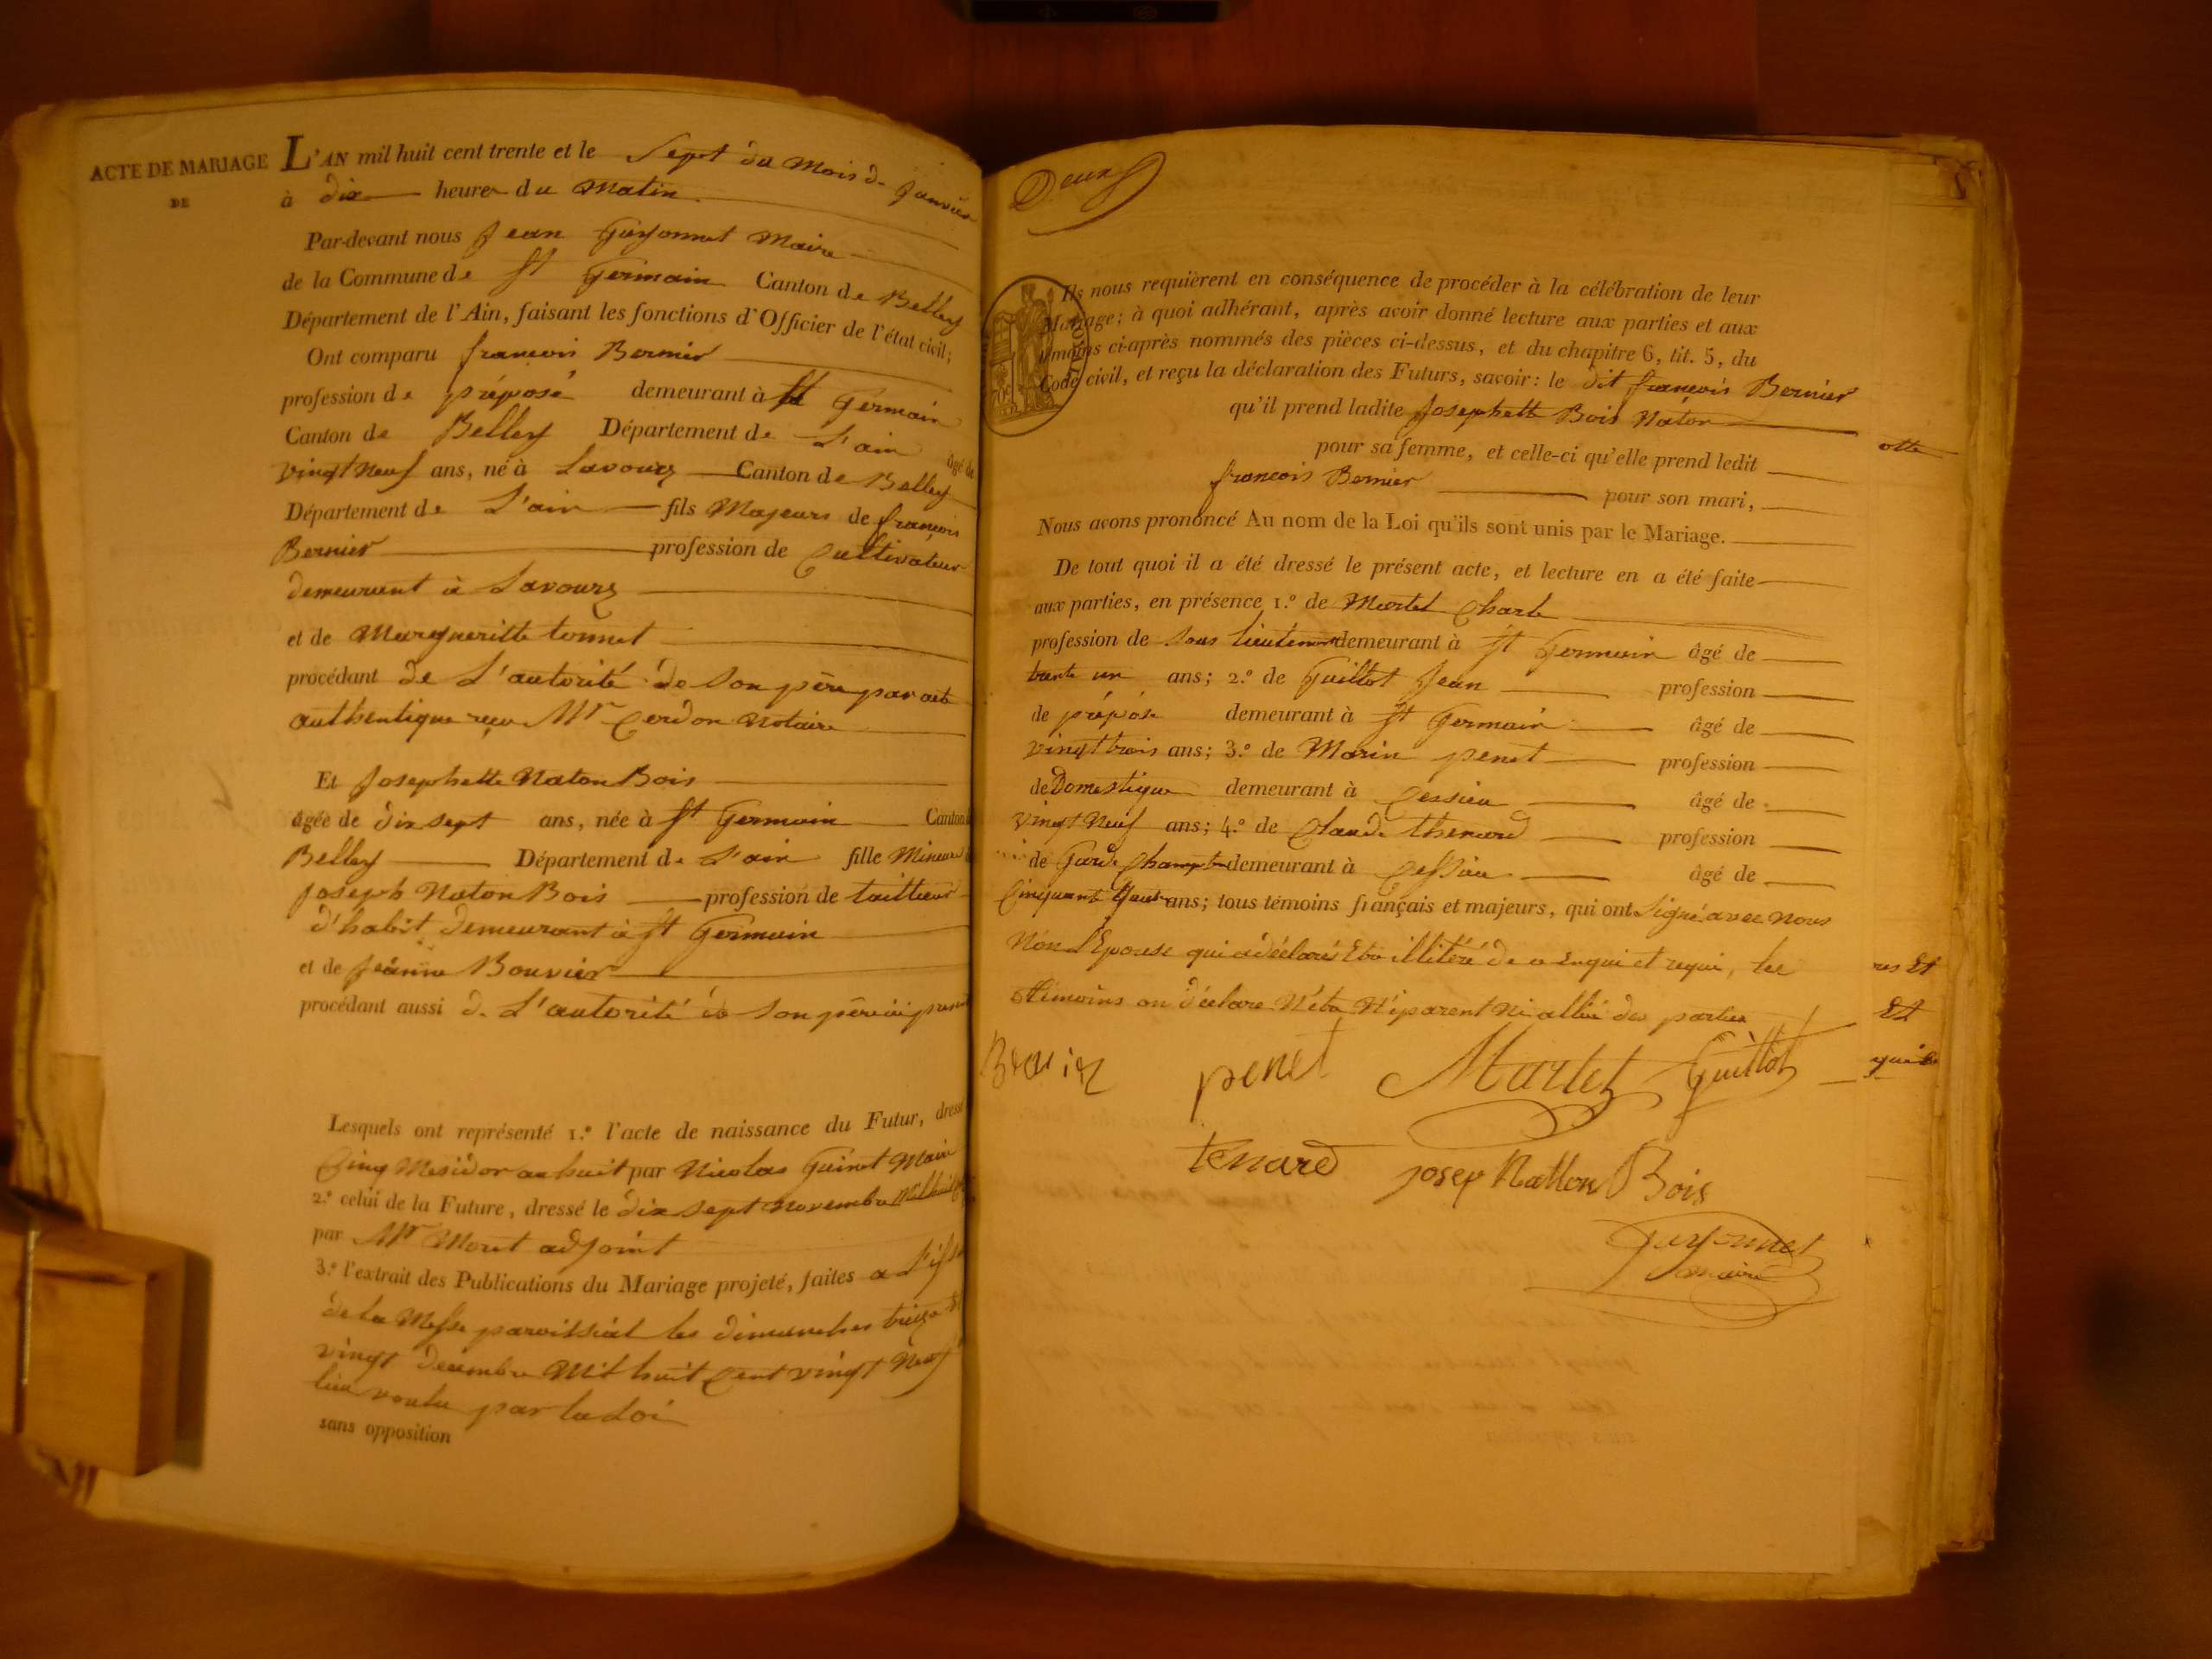 ACTE DE MARIAGE
DE
L'AN mil huit cent trente et le Sept du Mois de Janvier
à dix heures du Matin
Par-devant nous Jean Guyonnet Maire
de la Commune de St Germain Canton de Belley
Département de l'Ain, faisant les fonctions d'Officier de l'état civil;
Ont comparu françois Bernier
profession de préposé demeurant à St Germain
Canton de Belley Département de L'ain âgé de
vingt Neuf ans, né à Lavours Canton de Belley
Département de L'ain fils Majeurs de françois
Bernier profession de Cultivateur
demeurant à Lavours
et de Margueritte tonnet
procédant de L'autorité de Son père par acte
authentique reçu Mr Cerdon Notaire
Et Josephette Naton Bois
âgée de dix sept ans, née à St Germain Canton
Belley Département de L'ain fille Mineure
Joseph Naton Bois profession de tailleur
d'habit demeurant à St Germain
et de Jeanne Bouvier
procédant aussi de L'autorité de Son père ici présent
Lesquels ont représenté 1.º l'acte de naissance du Futur, dressé
Cinq Mesidor an huit par Nicolas Guinet Maire
2.º celui de la Future, dressé le dix Sept Novembre Mil huit
par Mr Moret adjoint
3.º l'extrait des Publications du Mariage projeté, faites a L'iss
de la Messe paroissial les dimanches treize Et
vingt Decembre Mil huit Cent vingt Neuf
lieu voulu par la Loi
sans opposition
Deux
Ils nous requièrent en conséquence de procéder à la célébration de leur
Mariage; à quoi adhérant, après avoir donné lecture aux parties et aux
témoins ci-après nommés des pièces ci-dessus, et du chapitre 6, tit. 5, du
Code civil, et reçu la déclaration des Futurs, savoir: le dit françois Bernier
qu'il prend ladite Josephette Bois Naton
pour sa femme, et celle-ci qu'elle prend ledit
françois Bernier pour son mari,
Nous avons prononcé Au nom de la Loi qu'ils sont unis par le Mariage.
De tout quoi il a été dressé le présent acte, et lecture en a été faite
aux parties, en présence 1.º de Martet Charle
profession de Sous lieutenant demeurant à St Germain âgé de
trente un ans; 2.º de Guillot Jean profession
de préposé demeurant à St Germain âgé de
vingt trois ans; 3.º de Marin penet profession
de Domestique demeurant à Cessieu âgé de
vingt Neuf ans; 4.º de Claude thenard profession
de Garde Champtre demeurant à Cessieu âgé de
Cinquant ans; tous témoins français et majeurs, qui ont Signé avec Nous
Non L'Epouse qui a déclaré Etre illitéré de ce Enqui et requi, les
témoins on déclare N'étre Ni parent Ni allié des parties
penet Martet Guillot
tenard Josep Natton Bois
Guyonnet
maire
otte
res Et
Et